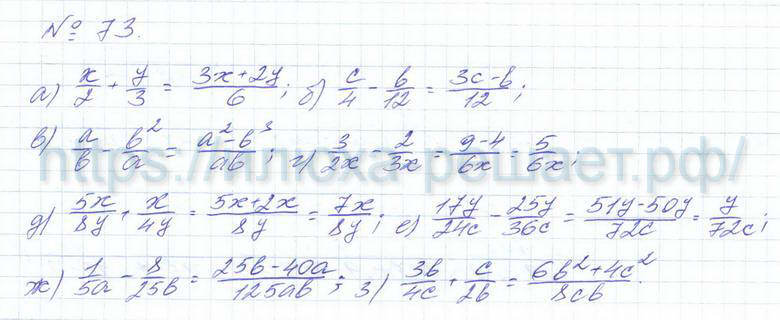 № 73.
а) x/2 + y/3 = (3x+2y)/6; б) c/4 - b/12 = (3c-b)/12;
в) a/b - b²/a = (a²-b³)/ab; г) 3/2x - 2/3x = (9-4)/6x = 5/6x;
https://плюха-решает.рф/
д) 5x/8y + x/4y = (5x+2x)/8y = 7x/8y; е) 17y/24c - 25y/36c = (51y-50y)/72c = y/72c;
ж) 1/5a - 8/25b = (25b-40a)/125ab; з) 3b/4c + c/2b = (6b²+4c²)/8cb.